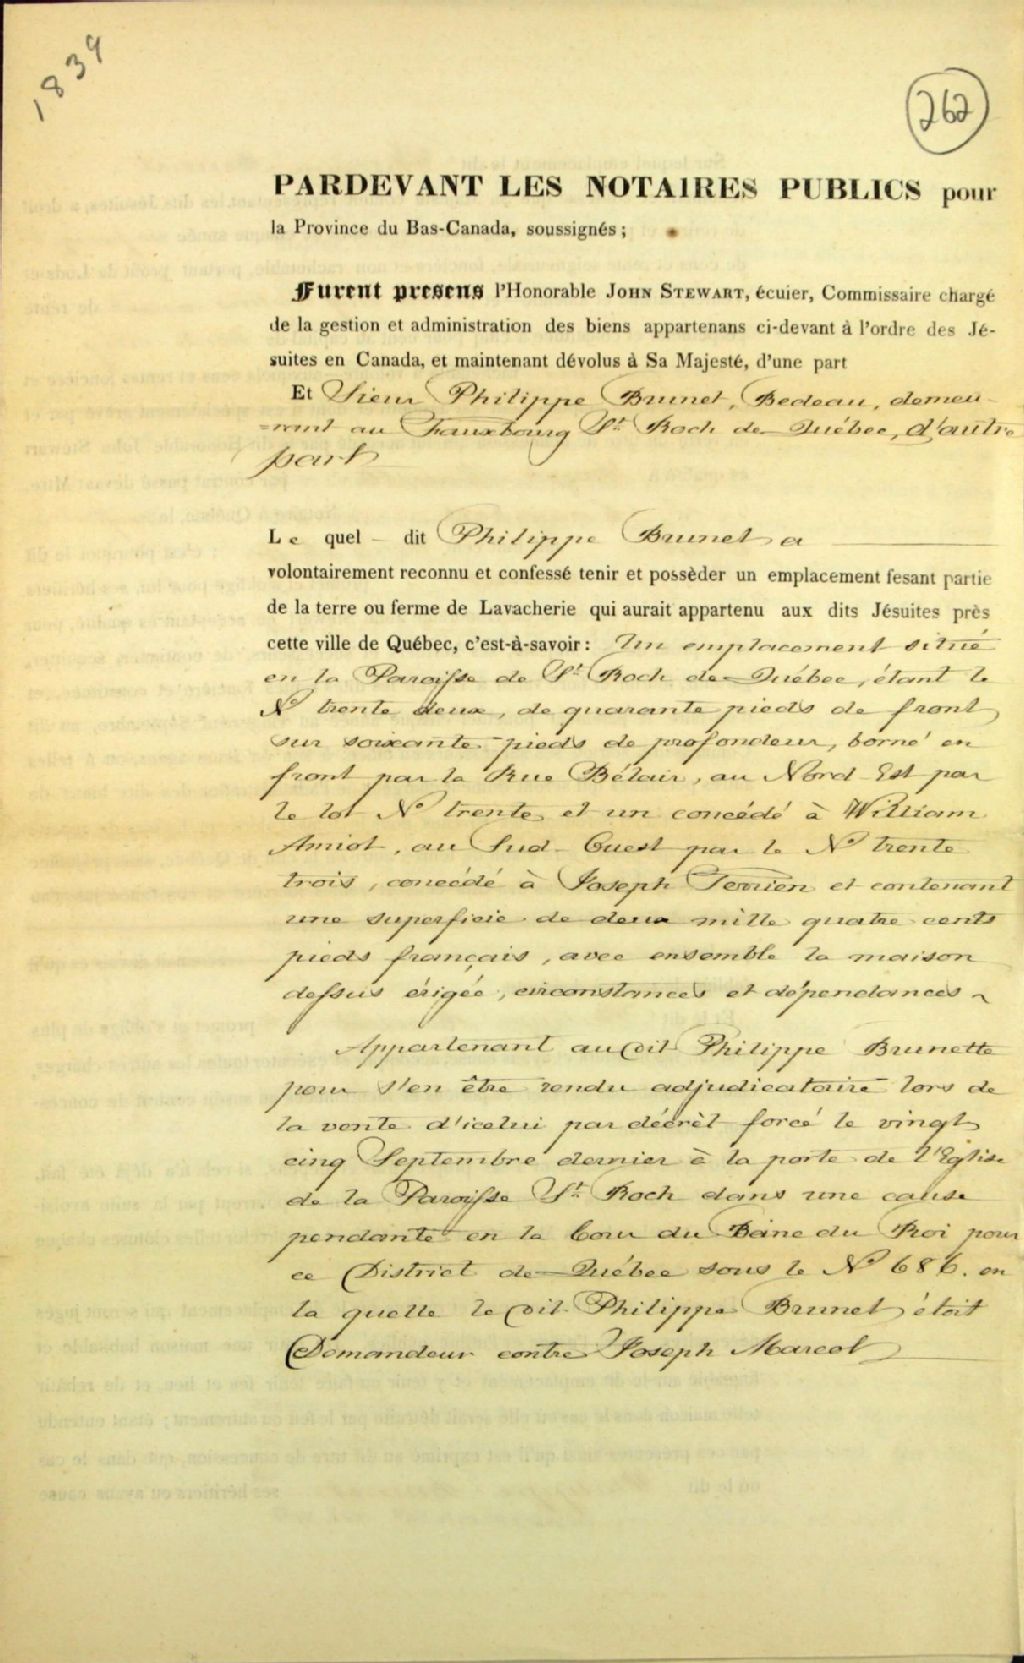 1839
262
PARDEVANT LES NOTAIRES PUBLICS pour
la Province du Bas-Canada, soussignés;
Furent presens l'Honorable JOHN STEWART, écuier, Commissaire chargé
de la gestion et administration des biens appartenans ci-devant à l'ordre des Jé-
suites en Canada, et maintenant dévolus à Sa Majesté, d'une part
Et Sieur Philippe Brunet, Bedeau, demeu-
-rant au Fauxbourg St. Roch de Québec, d'autre
part
Le quel – dit Philippe Brunet a
volontairement reconnu et confessé tenir et possèder un emplacement fesant partie
de la terre ou ferme de Lavacherie qui aurait appartenu aux dits Jésuites près
cette ville de Québec, c'est-à-savoir: Un emplacement situé
en la Paroisse de St. Roch de Québec, étant le
No trente deux, de quarante pieds de front
sur soixante pieds de profondeur, borné en
front par la Rue Bélair, au Nord-Est par
le lot No trente et un concédé à William
Amiot, au Sud-Ouest par le No trente
trois, concédé à Joseph Terrien et contenant
une superficie de deux mille quatre cents
pieds français, avec ensemble la maison
dessus érigée, circonstances et dépendances ~
Appartenant au dit Philippe Brunette
pour s'en être rendu adjudicataire lors de
la vente d'icelui par décrèt forcé le vingt
cinq Septembre dernier à la porte de l'Eglise
de la Paroisse St. Roch dans une cause
pendante en la Cour du Banc du Roi pour
ce District de Québec sous le No 686. en
la quelle le dit Philippe Brunet étoit
Demandeur contre Joseph Marcot